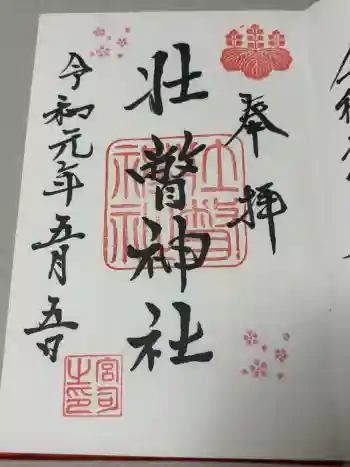 奉拝
壮瞥神社
令和元年五月五日
壮瞥神社
宮司之印